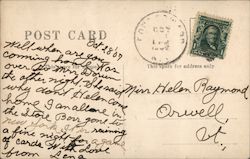 POST CARD
Oct 28/07
Well when are you
comming home. Mar
over at Mrs
the other night. She said
why dont Helen come
home. I am all alone in
the Store. Bar gone
raining
a fine night for a game
of cards. With love
from Lena
This space for address only.
Miss Helen Raymond,
Orwell,
Vt.